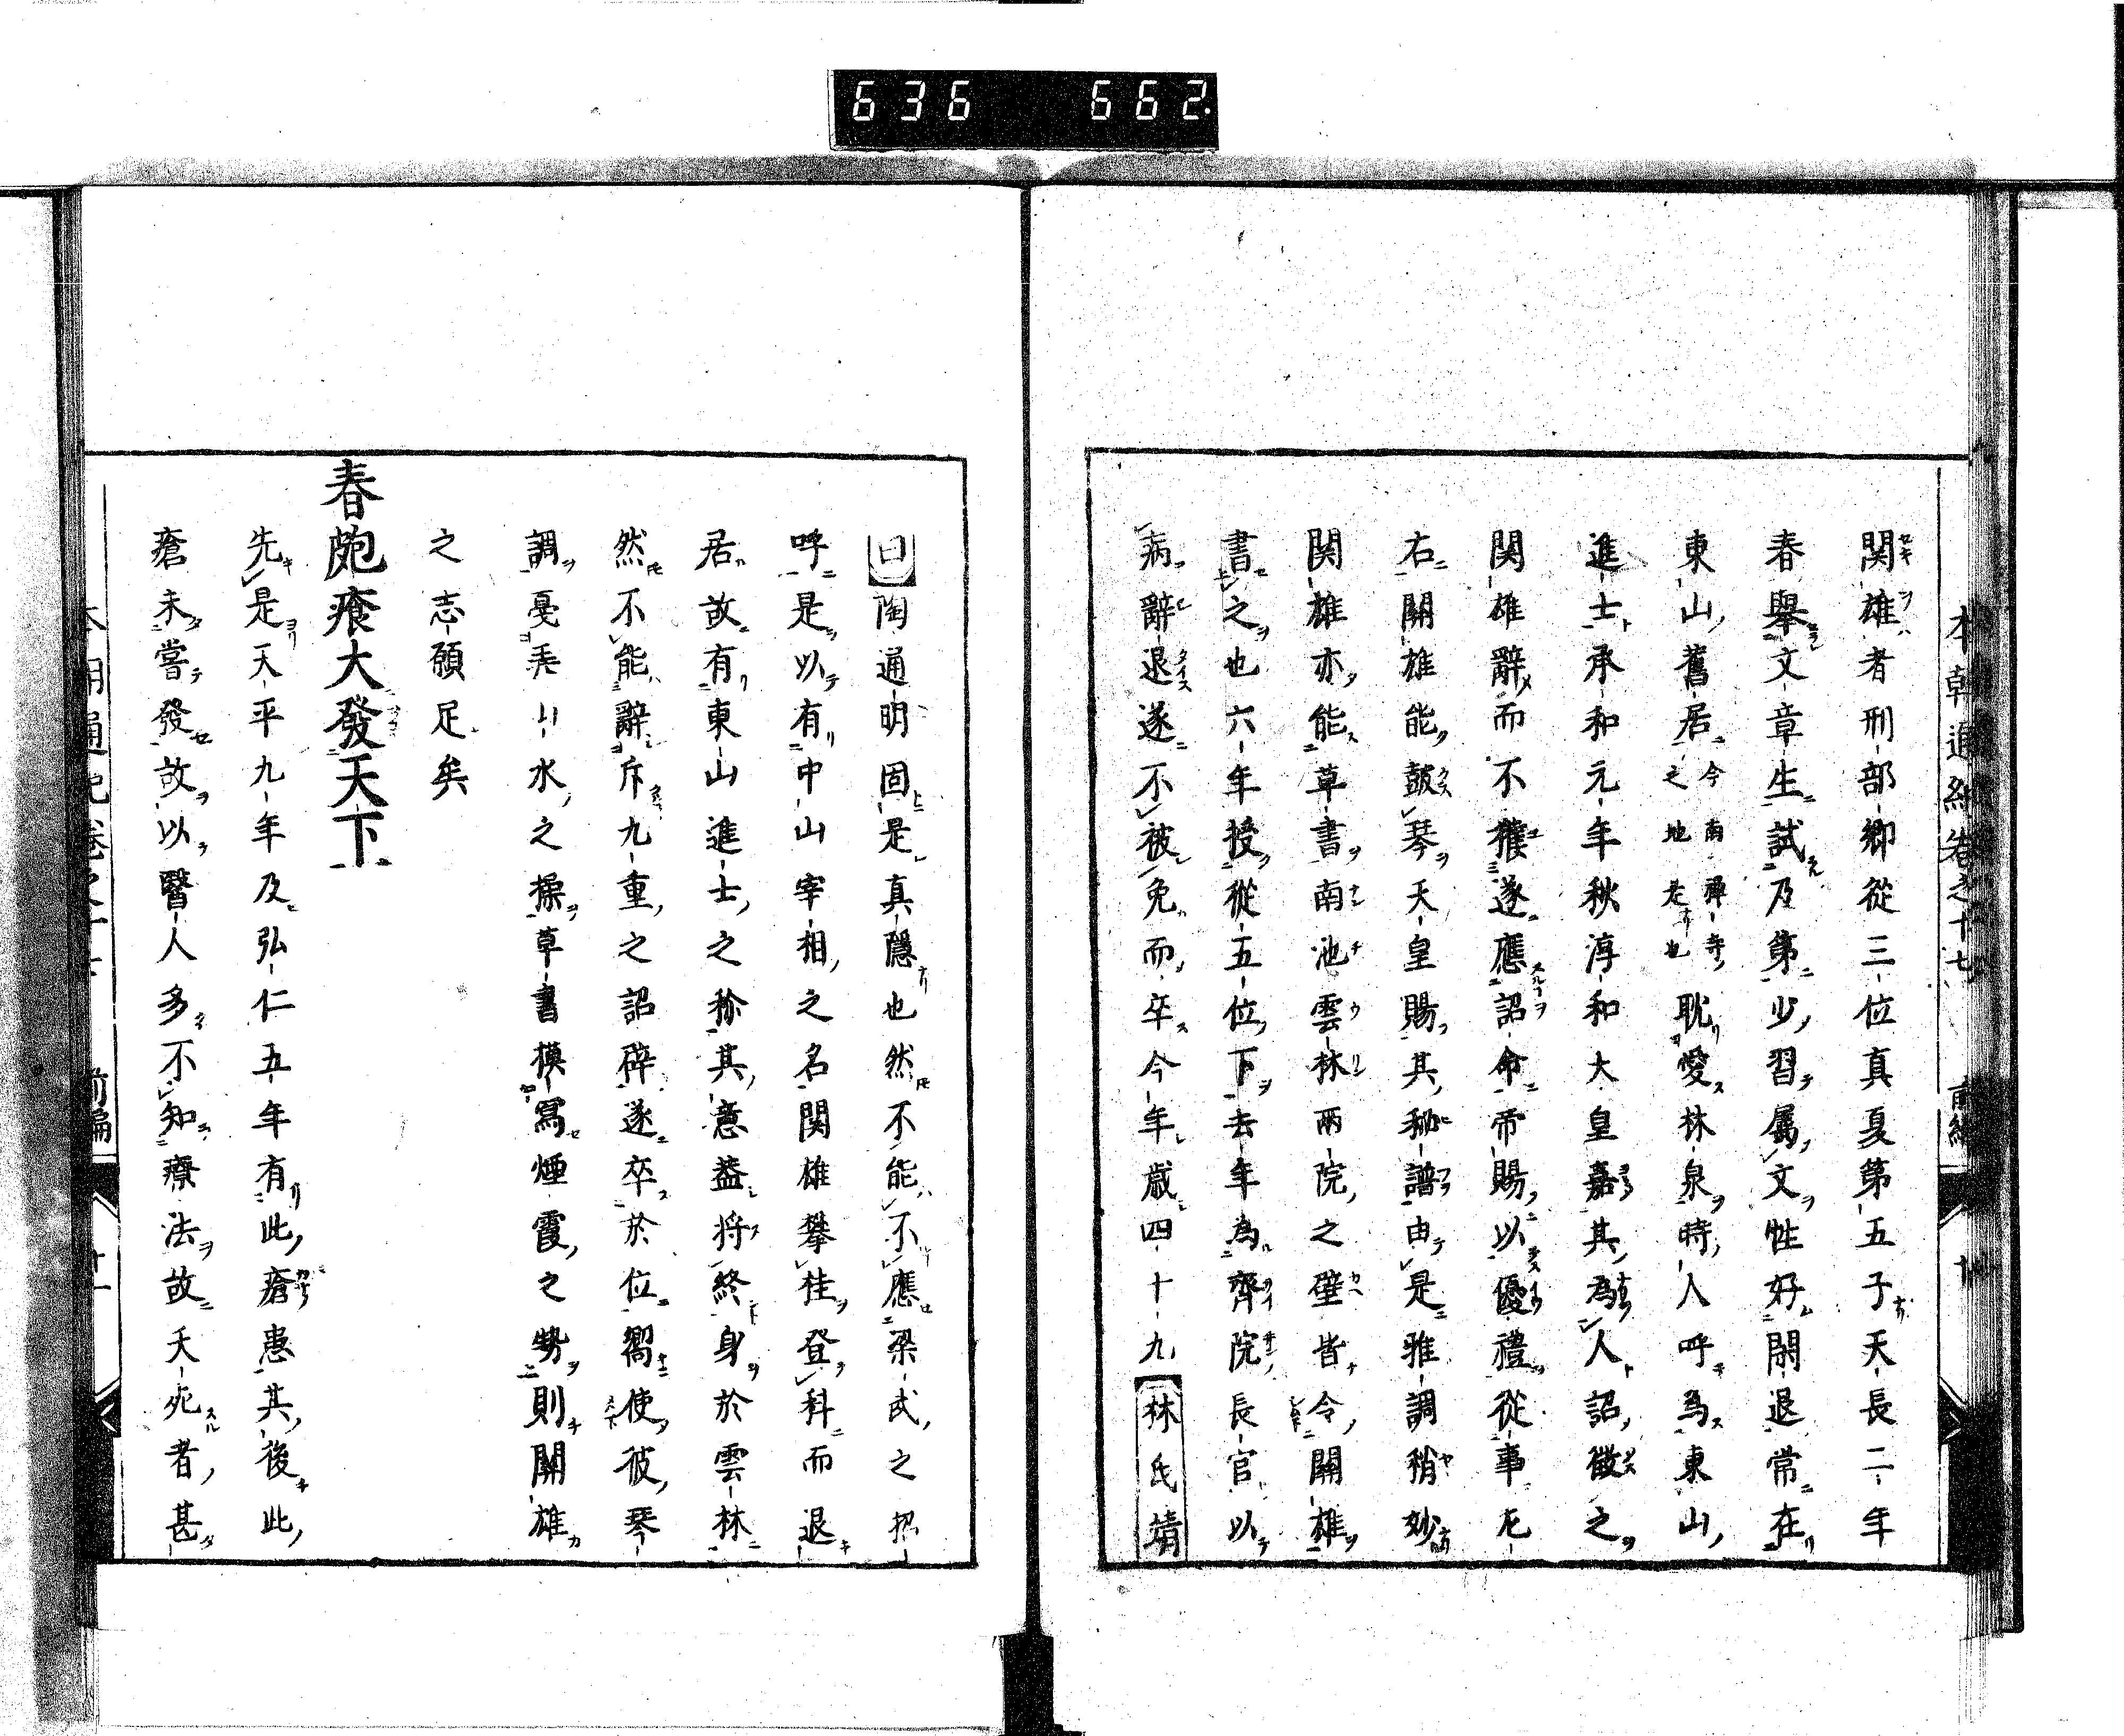 636 662
本朝通紀卷之十七 前編 廿
関雄者刑部卿從三位真夏第五子天長二年
春擧文章生試乃第少習属文性好閑退常在
東山舊居今南禪寺之地是也耽愛林泉時人呼為東山
進士承和元年秋淳和大皇嘉其為人詔徵之
関雄辭而不獲遂應詔命帝賜以優禮從事左
右關雄能皷琴天皇賜其秘譜由是雅調稍妙
関雄亦能草書南池雲林兩院之壁皆令關雄
書之也六年授從五位下去年為齊院長官以
病辭退遂不被免而卒今年歲四十九林氏靖
曰陶通明固是真隱也然不能不應梁武之招
呼是以有中山宰相之名関雄攀桂登科而退
居故有東山進士之称其意益将終身於雲林
然不能辭斥九重之詔辟遂卒於位嚮使彼琴
調憂美山水之操草書模寫煙霞之勢則關雄
之志願足矣
春皰瘡大發天下
先是天平九年及弘仁五年有此瘡患其後此
瘡未嘗發故以醫人多不知療法故夭死者甚
本朝通紀卷之十七 前編 廿一